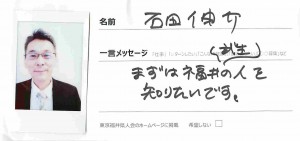 名前 石田伸介
一言メッセージ
(武生)
まずは福井の人を
知りたいです。
東京福井県人会のホームページに掲載 希望しない □